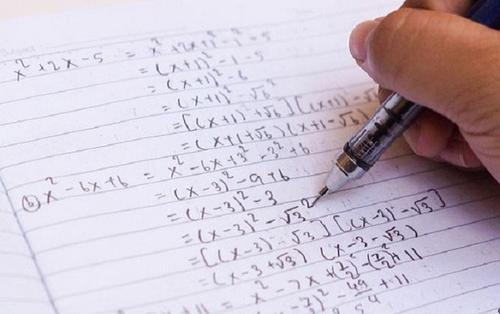 x² + 2x - 5 = x² + 2x + 1² - 1² - 5
= (x+1)² - 1 - 5
= (x+1)² - 6
= (x+1)² - √6²
= [(x+1) + √6] [(x+1) - √6]
= (x+1+√6) (x+1-√6)
(b) x² - 6x + 6 = x² - 6x + 3² - 3² + 6
= (x-3)² - 9 + 6
= (x-3)² - 3
= (x-3)² - √3²
= [(x-3) - √3] [(x-3) - √3]
= (x-3+√3) (x-3-√3)
+ 11 = x² - 7x + (7/2)² - (7/2)² + 11
)² - 49/4 + 11